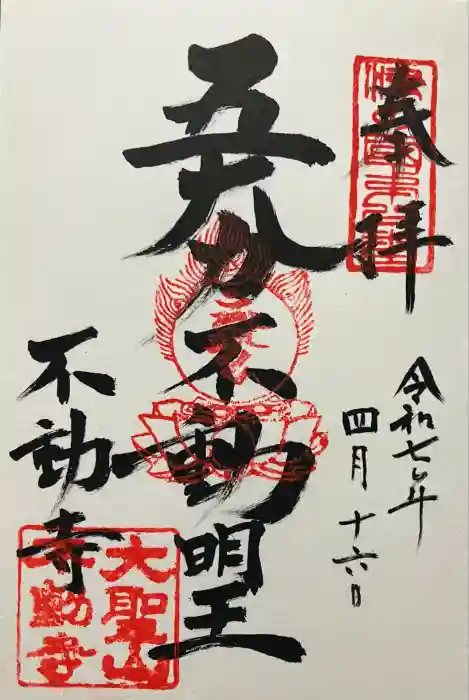 奉拝
令和七年
四月十六日
五大力不動明王
不動寺
大聖山
不動寺